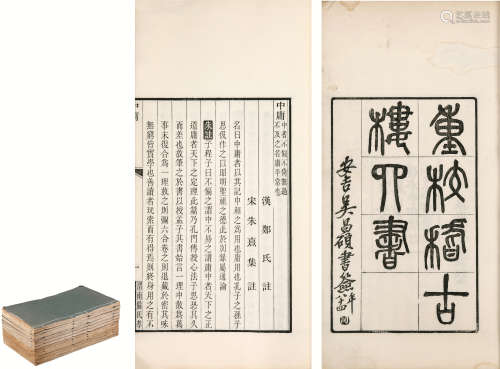 中庸 中者不偏不倚無過
不及之名庸平常也
漢 鄭氏 註
宋 朱熹集 註
名曰中庸者以其記中和之為用也庸用也孔子之孫子
思伋作之以昭明聖祖之德此於別錄屬通論
朱註 子程子曰不偏之謂中不易之謂庸中者天下之正
道庸者天下之定理此篇乃孔門傳授心法子思恐其久
而差也故筆之於書以授孟子其書始言一理中散為萬
事末復合為一理放之則彌六合卷之則退藏於密其味
無窮皆實學也善讀者玩索而有得焉則終身用之有不
中庸
一
重校稽古
樓四書
安吉吳昌碩書簽